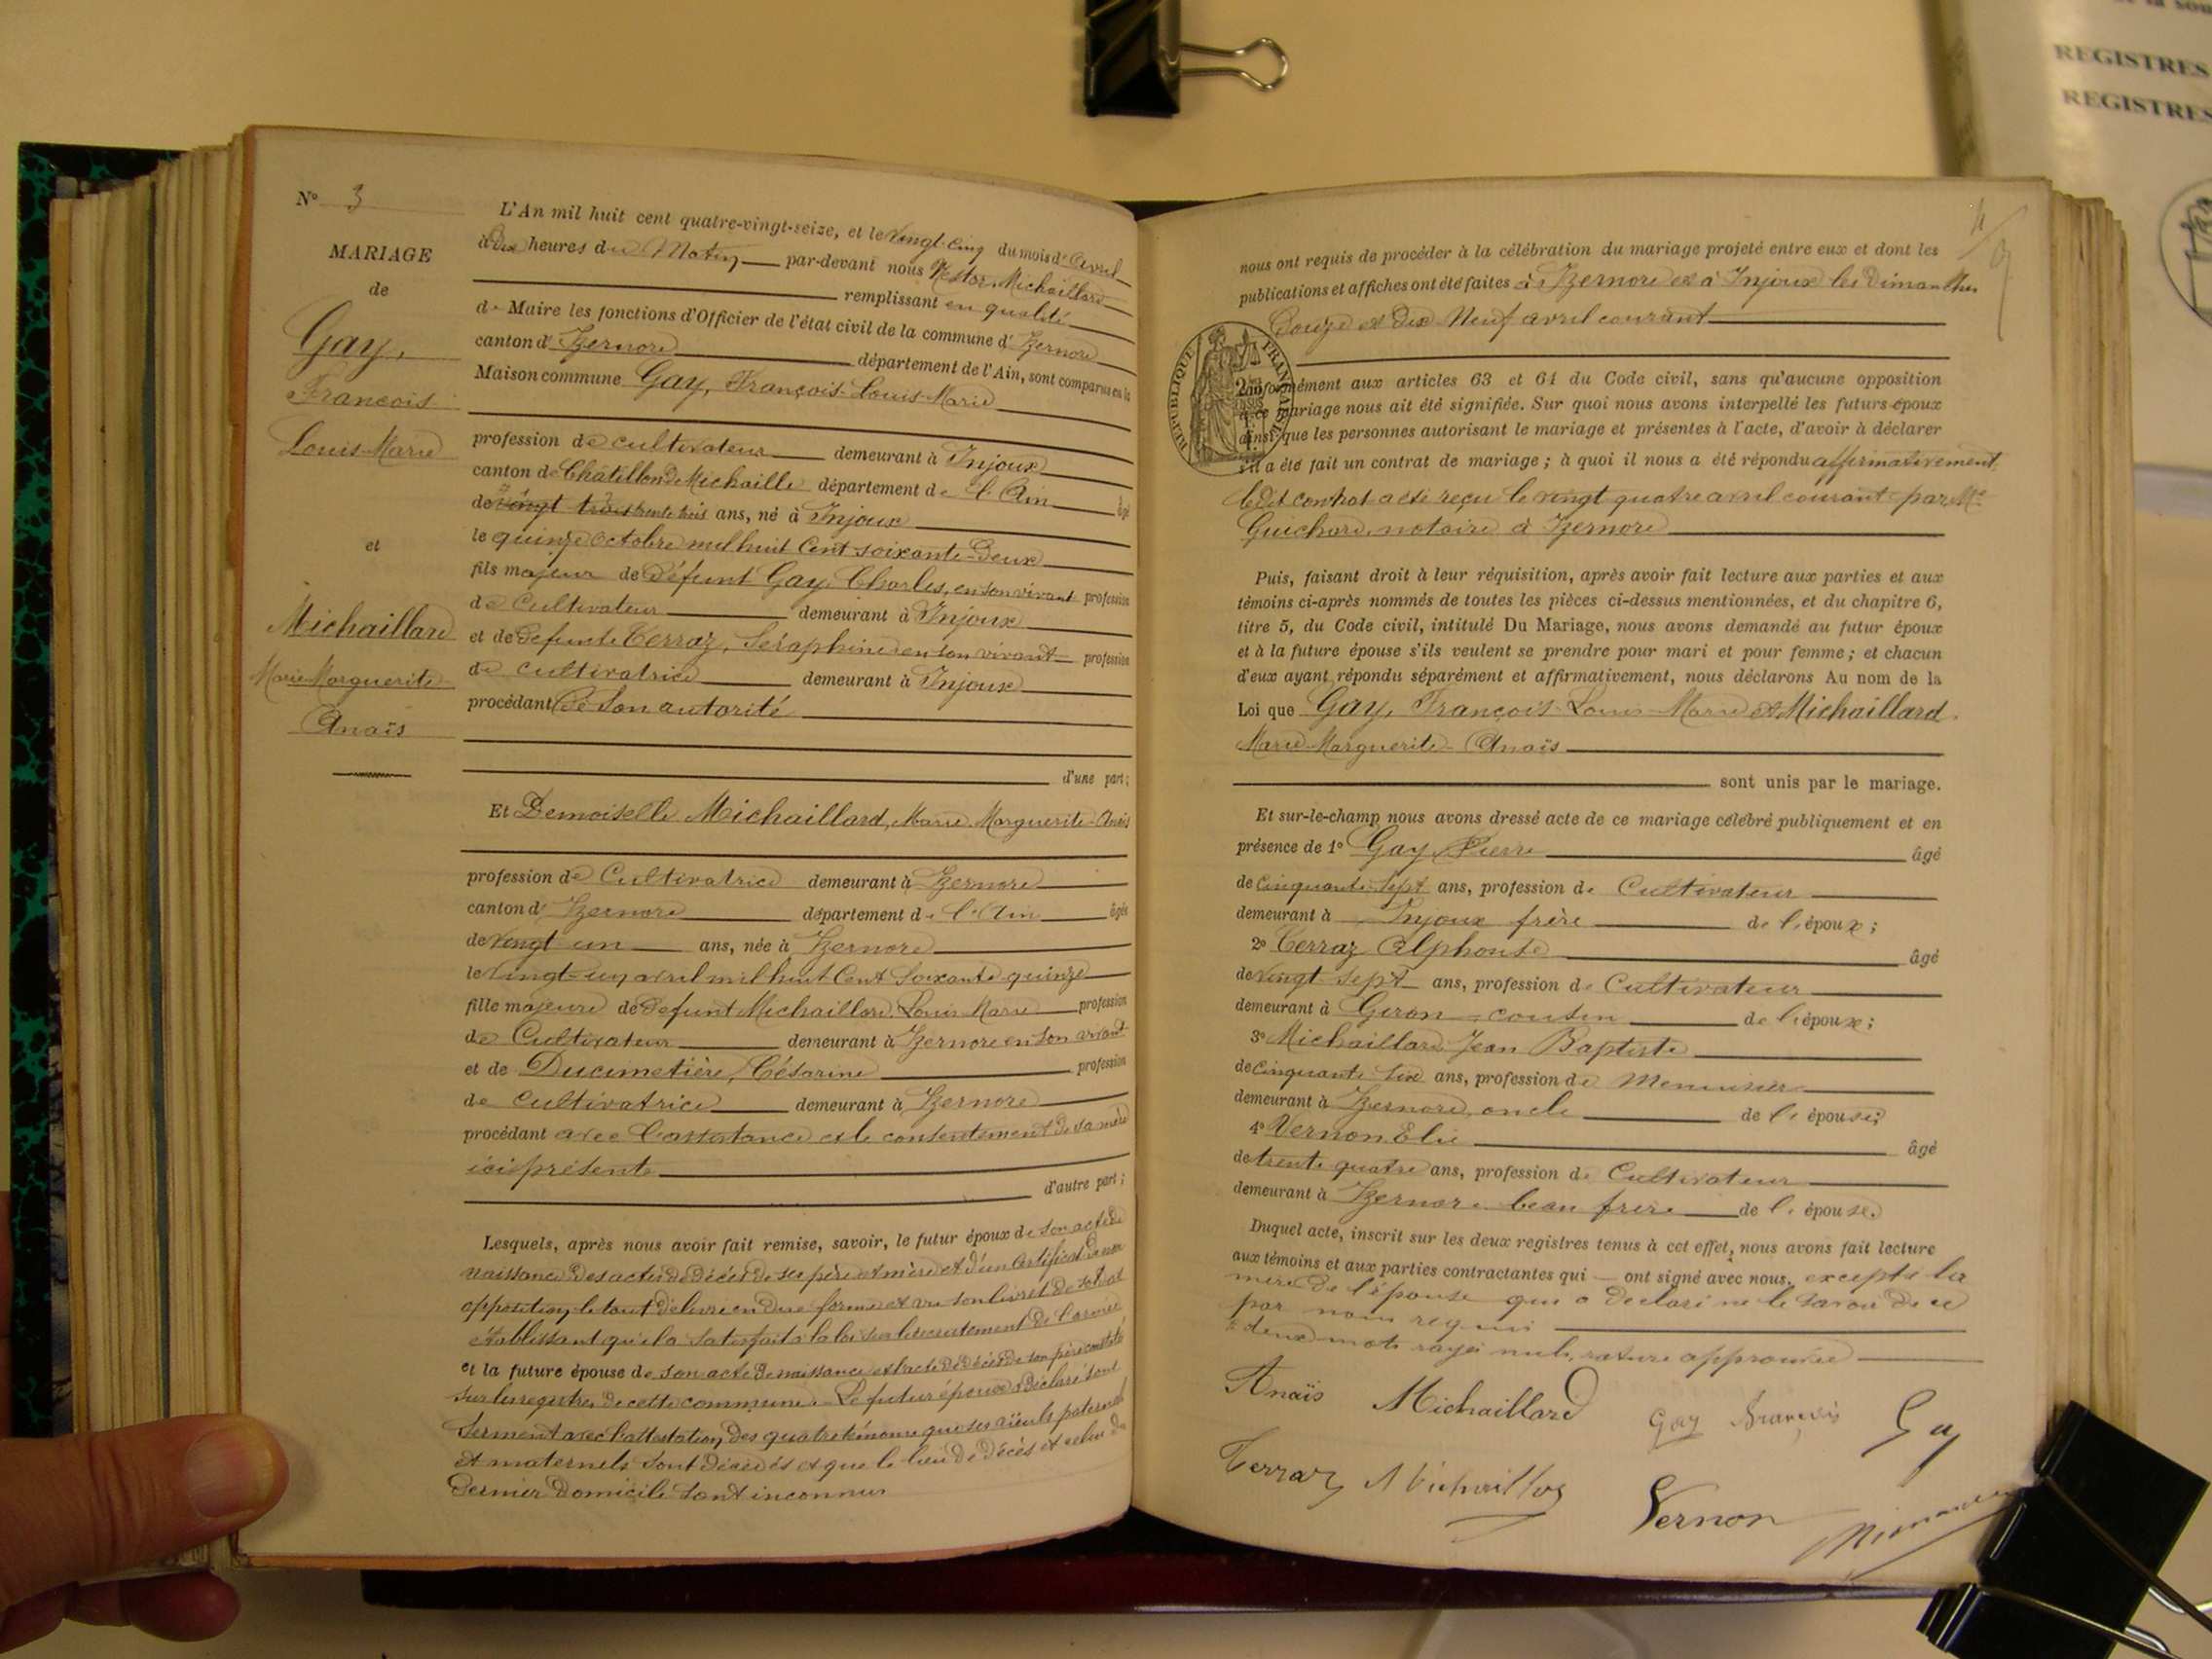 N° 3
MARIAGE
de
Gay,
François
Louis-Marie
et
Michaillard
Marie Marguerite
Anaïs
L'An mil huit cent quatre-vingt-seize, et le Vingt-Cinq du mois d'Avril
à Dix heures du Matin par-devant nous Nestor Michaillard
remplissant en qualité
de Maire les fonctions d'Officier de l'état civil de la commune d'Izernore
canton d'Izernore département de l'Ain, sont comparus en la
Maison commune Gay, François-Louis-Marie
profession de cultivateur demeurant à Injoux
canton de Châtillon de Michaille département de l'Ain âgé
de vingt trois trente trois ans, né à Injoux
le quinze octobre mil huit Cent soixante-Deux
fils majeur de Défunt Gay, Charles, en son vivant profession
de Cultivateur demeurant à Injoux
et de Defunte Terraz, Séraphine en son vivant profession
de cultivatrice demeurant à Injoux
procédant De Son autorité
d'une part;
Et Demoiselle Michaillard, Marie Marguerite-Anaïs
profession de Cultivatrice demeurant à Izernore
canton d'Izernore département de l'Ain âgée
de Vingt un ans, née à Izernore
le Vingt-un avril mil huit Cent Soixante-quinze
fille majeure de Defunt Michaillard Louis Marie profession
de Cultivateur demeurant à Izernore en son vivant
et de Ducimetière, Césarine profession
de Cultivatrice demeurant à Izernore
procédant avec l'assistance et le consentement de sa mère
ici présente
d'autre part;
Lesquels, après nous avoir fait remise, savoir, le futur époux de son acte de
naissance Des actes de Décès de ses père et mère et d'un certificat de non
opposition le tout Délivré en Due forme et vu son livret de soldat
établissant qu'il a Satisfait à la loi sur le recrutement de l'armée
et la future épouse de son acte de naissance et l'acte de Décès de son père constatés
sur les registres de cette commune. Le futur époux a Déclaré sous
Serment avec l'attestation Des quatre témoins que ses aïeuls paternels
et maternels sont Décédés et que le lieu de Décès et celui du
Dernier Domicile sont inconnus
4
nous ont requis de procéder à la célébration du mariage projeté entre eux et dont les
publications et affiches ont été faites à Izernore et à Injoux les Dimanches
Douze et Dix Neuf avril courant
RÉPUBLIQUE FRANÇAISE
conformément aux articles 63 et 64 du Code civil, sans qu'aucune opposition
à ce mariage nous ait été signifiée. Sur quoi nous avons interpellé les futurs époux
ainsi que les personnes autorisant le mariage et présentes à l'acte, d'avoir à déclarer
s'il a été fait un contrat de mariage; à quoi il nous a été répondu affirmativement
le dit contrat a été reçu le vingt quatre avril courant par Me
Guichard, notaire à Izernore
Puis, faisant droit à leur réquisition, après avoir fait lecture aux parties et aux
témoins ci-après nommés de toutes les pièces ci-dessus mentionnées, et du chapitre 6,
titre 5, du Code civil, intitulé Du Mariage, nous avons demandé au futur époux
et à la future épouse s'ils veulent se prendre pour mari et pour femme; et chacun
d'eux ayant répondu séparément et affirmativement, nous déclarons Au nom de la
Loi que Gay, François-Louis-Marie et Michaillard
Marie-Marguerite-Anaïs
sont unis par le mariage.
Et sur-le-champ nous avons dressé acte de ce mariage célébré publiquement et en
présence de 1° Gay Pierre âgé
de Cinquante-Sept ans, profession de Cultivateur
demeurant à Injoux frère de l'époux;
2° Terraz Alphonse âgé
de Vingt-Sept ans, profession de Cultivateur
demeurant à Giron cousin de l'époux;
3° Michaillard Jean Baptiste
de Cinquante Six ans, profession de Menuisier
demeurant à Izernore, oncle de l'épouse;
4° Vernon Elie âgé
de trente quatre ans, profession de Cultivateur
demeurant à Izernore beau frère de l'épouse.
Duquel acte, inscrit sur les deux registres tenus à cet effet, nous avons fait lecture
aux témoins et aux parties contractantes qui ont signé avec nous, excepté la
mère De l'épouse qui a Déclaré ne le savoir de ce
par nous requis
deux mots rayés nuls, rature approuvée
Anaïs Michaillard Gay François Gay
Terraz Michaillard Vernon
REGISTRES
REGISTRES